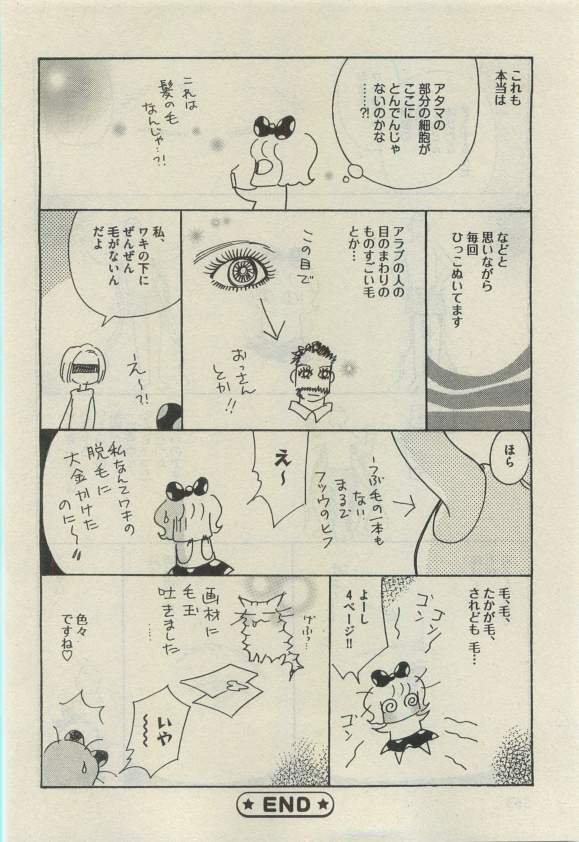 これも
本当は
アタマの
部分の細胞が
ここに
とんでんじゃ
ないのかな
……?!
これは
髪の毛
なんじゃ…?!
などと
思いながら
毎回
ひっこぬいてます
アラブの人の
目のまわりの
ものすごい毛
とか…
この目で
おっさん
とか!!
私、
ワキの下に
ぜんぜん
毛がないん
だよ
えー?!
ほら
つぶ毛の一本も
ない
まるで
フツウのヒフ
え〜
私なんてワキの
脱毛に
大金かけた
のに〜〜
毛、毛、
たかが毛、
されども 毛…
ゴン
ゴン
ゴン
よーし
4ページ!!
げふっ…
画材に
毛玉
吐きました
……
いや
〜〜
色々
ですね♡
★ END ★